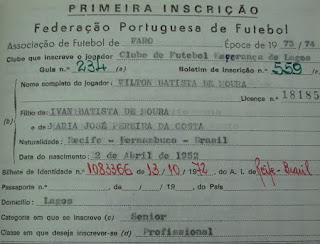 PRIMEIRA INSCRIÇÃO
Federação Portuguesa de Futebol
Associação de Futebol de FARO Época de 1973/74
Clube que inscreve o jogador Clube de Futebol Esperança de Lagos
Guia n.º 234 (a) Boletim de Inscrição n.º 559 (a)
Nome completo do jogador: WILTON BATISTA DE MOURA
Licença n.º 18185
(b)
Filho de IVAN BATISTA DE MOURA
e de MARIA JOSÉ PEREIRA DA COSTA
Naturalidade: Recife - Pernambuco - Brasil
Data do nascimento: 2 de Abril de 1952
Bilhete de Identidade n.º 1083366 de 13/10/1972, do A. I. de Recife-Brasil
Passaporte n.º , de / / 19 , do País
Domicílio: Lagos
Categoria em que se inscreve (c) Senior
Classe em que deseja inscrever-se (d) Profissional